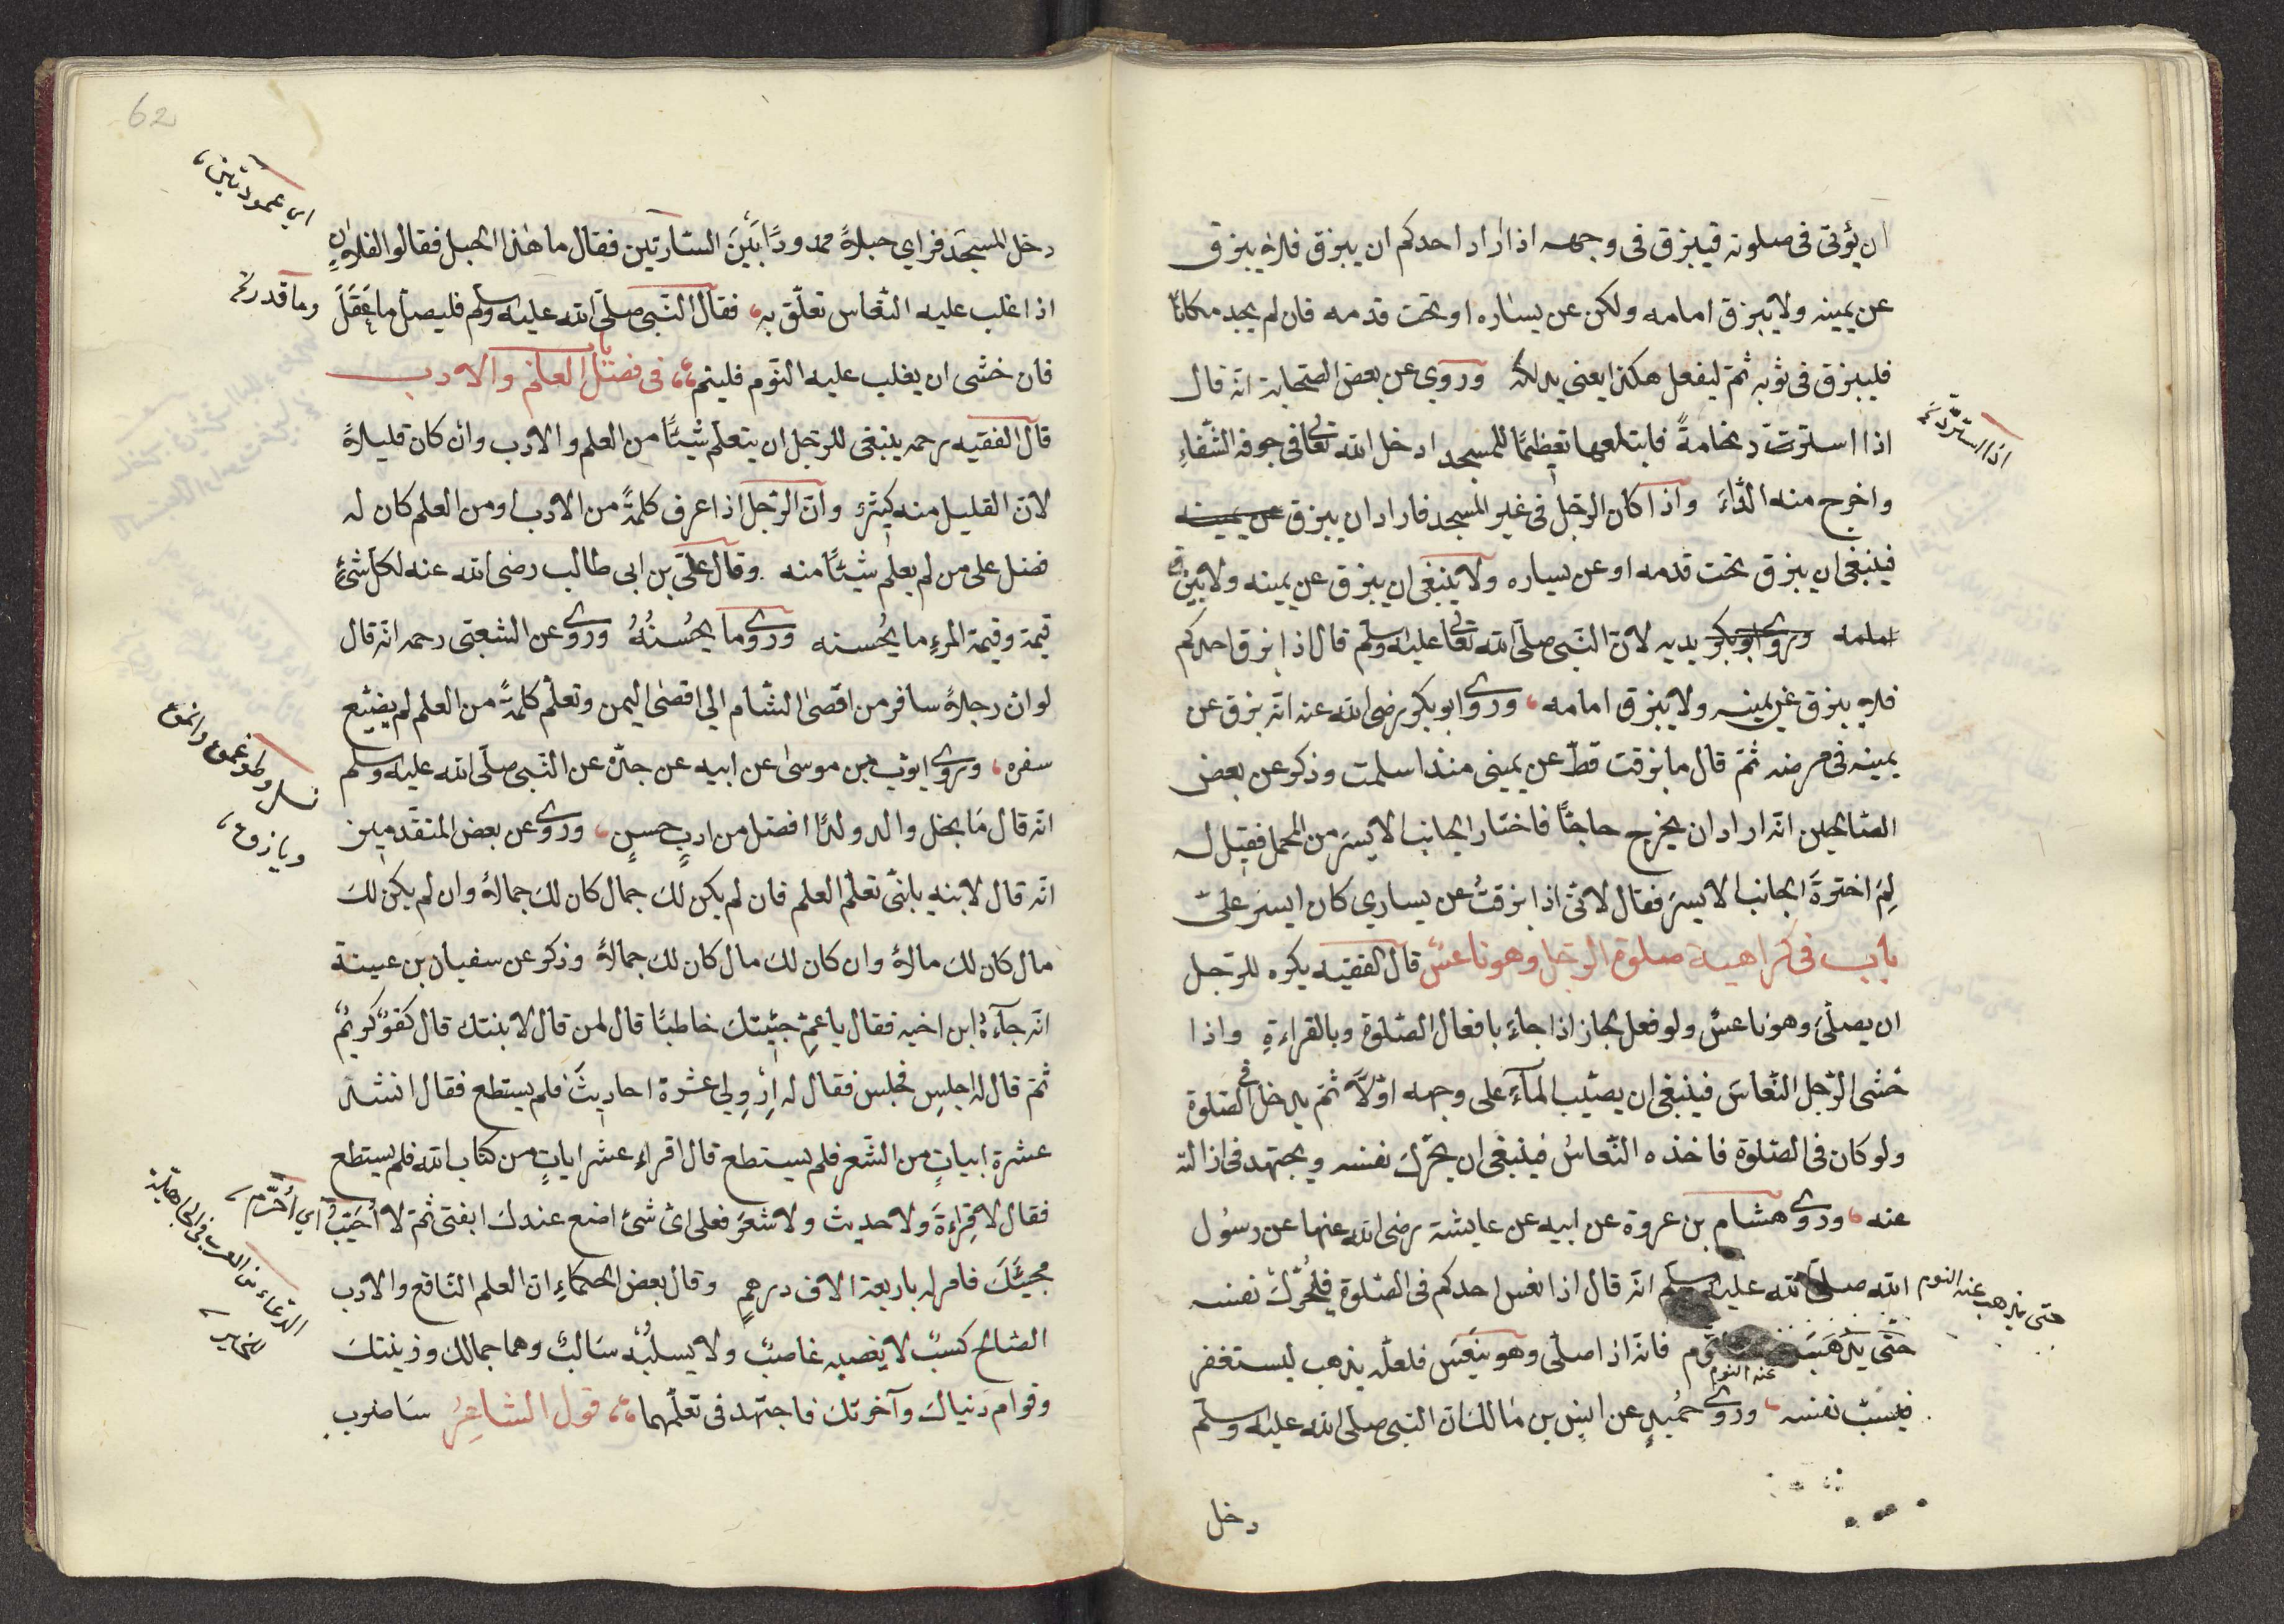 ان يؤتى فى صلوته فيبزق فى وجهه اذا اراد احدكم ان يبزق فلا يبزق
عن يمينه ولا يبزق امامه ولكن عن يساره او تحت قدمه فان لم يجد مكانًا
فليبزق فى ثوبه ثمّ ليفعل هكذا يعنى يدلكه وروى عن بعض الصّحابة انّه قال
اذا استرت د نخامةً فابتلعها تعظيمًا للمسجد ادخل الله تعالى فى جوفه الشّفاءِ
اذا استردّ تم
واخرج منه الدّاءَ واذا كان الرّجل فى غير المسجد فاراد ان يبزق عن يمينه
فينبغى ان يبزق تحت قدمه او عن يساره ولا ينبغى ان يبزق عن يمينه ولا يبزق
امامه وروى ابوبكر يديه لانّ النّبى صلّى الله تعالى عليه وسلّم قال اذا بزق احدكم
فلا يبزق عن يمينه ولا يبزق امامه، وروى ابوبكر رضى الله عنه انّه بزق عن
يمينه فى مرضه ثمّ قال ما بزقت قطّ عن يمينى منذ اسلمت وذكر عن بعض
الصّالحين انّه اراد ان يخرج حاجّا فاختار الجانب الايسر من المحمل فقيل له
لِمَ اخترةَ الجانب الايسر فقال لانّى اذا بزقتُ عن يسارى كان ايسر علىّ
باب فى كراهية صلوة الرّجل وهو ناعسٌ قال الفقيه يكره للرّجل
ان يصلّى وهو ناعسٌ ولو فعل لجاز اذا جاءَ بافعال الصّلوة وبالقراءةِ واذا
خشى الرّجل النّعاسَ فينبغى ان يصيّب المآءِ على وجهه اوّلاً ثمّ يدخل فى الصّلوة
ولو كان فى الصّلوة فاخذه النّعاسُ فينبغى ان يحرّك نفسه ويجتهد فى ازالته
عنه، وروى هشام بن عروة عن ابيه عن عايشة رضى الله عنها عن رسول
الله صلّى الله عليه وسلم انّه قال اذا نعس احدكم فى الصّلوة فليُحرّك نفسه
حتى يذهب عنه النوم
حتّى يذهَبَ عنه النوم فانّه اذا صلّى وهو ينعَس فلعلّه يذهب ليستغفر
فيسُبّ نفسه، وروى حُميدٍ عن انس بن مالك ان النبى صلّى الله عليه وسلّم
دخل
62
اى عمودتين،
دخل المسجد فراى حبلاً ممدودًا بَيْنَ السّارتين فقال ما هٰذا الحبل فقالوا الفلانٍ
اذا غلب عليه النّعاس تعلّق به، فقال النّبى صلّى الله عليه وسلم فليصلّ ما عَقَلَ
وما قدرتم
فان خشى ان يغلب عليه النّوم فلينم، باب فى فضل العلم والادب
قال الفقيه رحمه ينبغى للرّجل ان يتعلّم شيئًا من العلم والادب وان كان قليلاً
لانّ القليل منه كيثرٌ وانّ الرّجل اذا عرف كلمةً من الادب او من العلم كان له
فضل على من لم يعلم شيئًا منه وقال علىّ بن ابى طالب رضى الله عنه لكلّ شئٍ
قيمة وقيمة المرءِ ما يُحسنه وروى وما يُحسُنُهُ وروى عن الشعبىّ رحمه انّه قال
لو ان رجلاً سافر من اقصٰى الشّام الى اقصٰى اليمن وتعلّم كلمةً من العلم لم يضيّع
سفره، وروى ايوّب بن موسىٰ عن ابيه عن جدّه عن النّبى صلّى الله عليه وسلم
انّه قال مَا نحل والد ولدًا افضل من ادبٍ حسنٍ، وروى عن بعض المتقدّمين
انّه قال لابنه يا بنىّ تعلّم العلم فان لم يكن لك جمال كان لك جمالاً وان لم يكن لك
مال كان لك مالاً وان كان لك مال كان لك جمالاً وذكر عن سفيان بن عيينة
انّه جآءهُ ابن اخيه فقال يا عمِّ جئيتك خاطبًا قال لمن قال لابنتك قال كفوٌ كريمٌ
ثمّ قال له اجلس فجلس فقال له اِرْوِلى عشرة احاديثَ فلم يستطع فقال انشد
عشرة ابياتٍ من الشّعر فلم يستطع قال اقراء عشر اياتٍ من كتاب الله فلم يستطع
فقال لا قِراءةَ ولا حديث ولا شعرَ فعلى اىّ شئ اضع عندك ابنتى ثمّ لا اُخَيّبُ
اى اُحرّم،
مجيئَكَ فامر له باربعة الاف درهمٍ وقال بعض الحكماءِ انّ العلم النّافع والادب
الصّالح كسبٌ لا يغصبه غاصبٌ ولا يسلُبُه سَالبٌ وهما جمالك وزينتك
وقوام دنياك وآخرتك فاجتهد فى تعلّمهما، قول الشاعِرُ سَاضرب